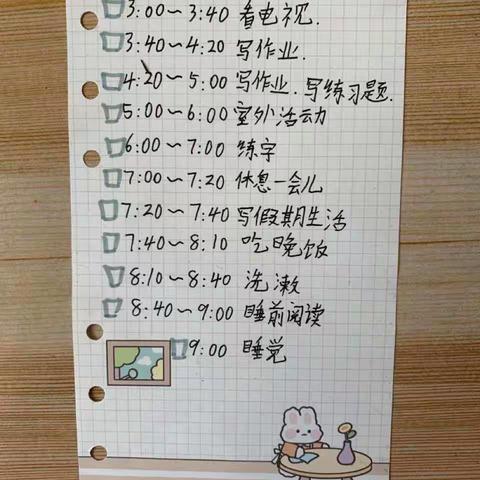 3:00~3:40 看电视.
3:40~4:20 写作业.
4:20~5:00 写作业.写练习题.
5:00~6:00 室外活动
6:00~7:00 练字
7:00~7:20 休息一会儿
7:20~7:40 写假期生活
7:40~8:10 吃晚饭
8:10~8:40 洗漱
8:40~9:00 睡前阅读
9:00 睡觉